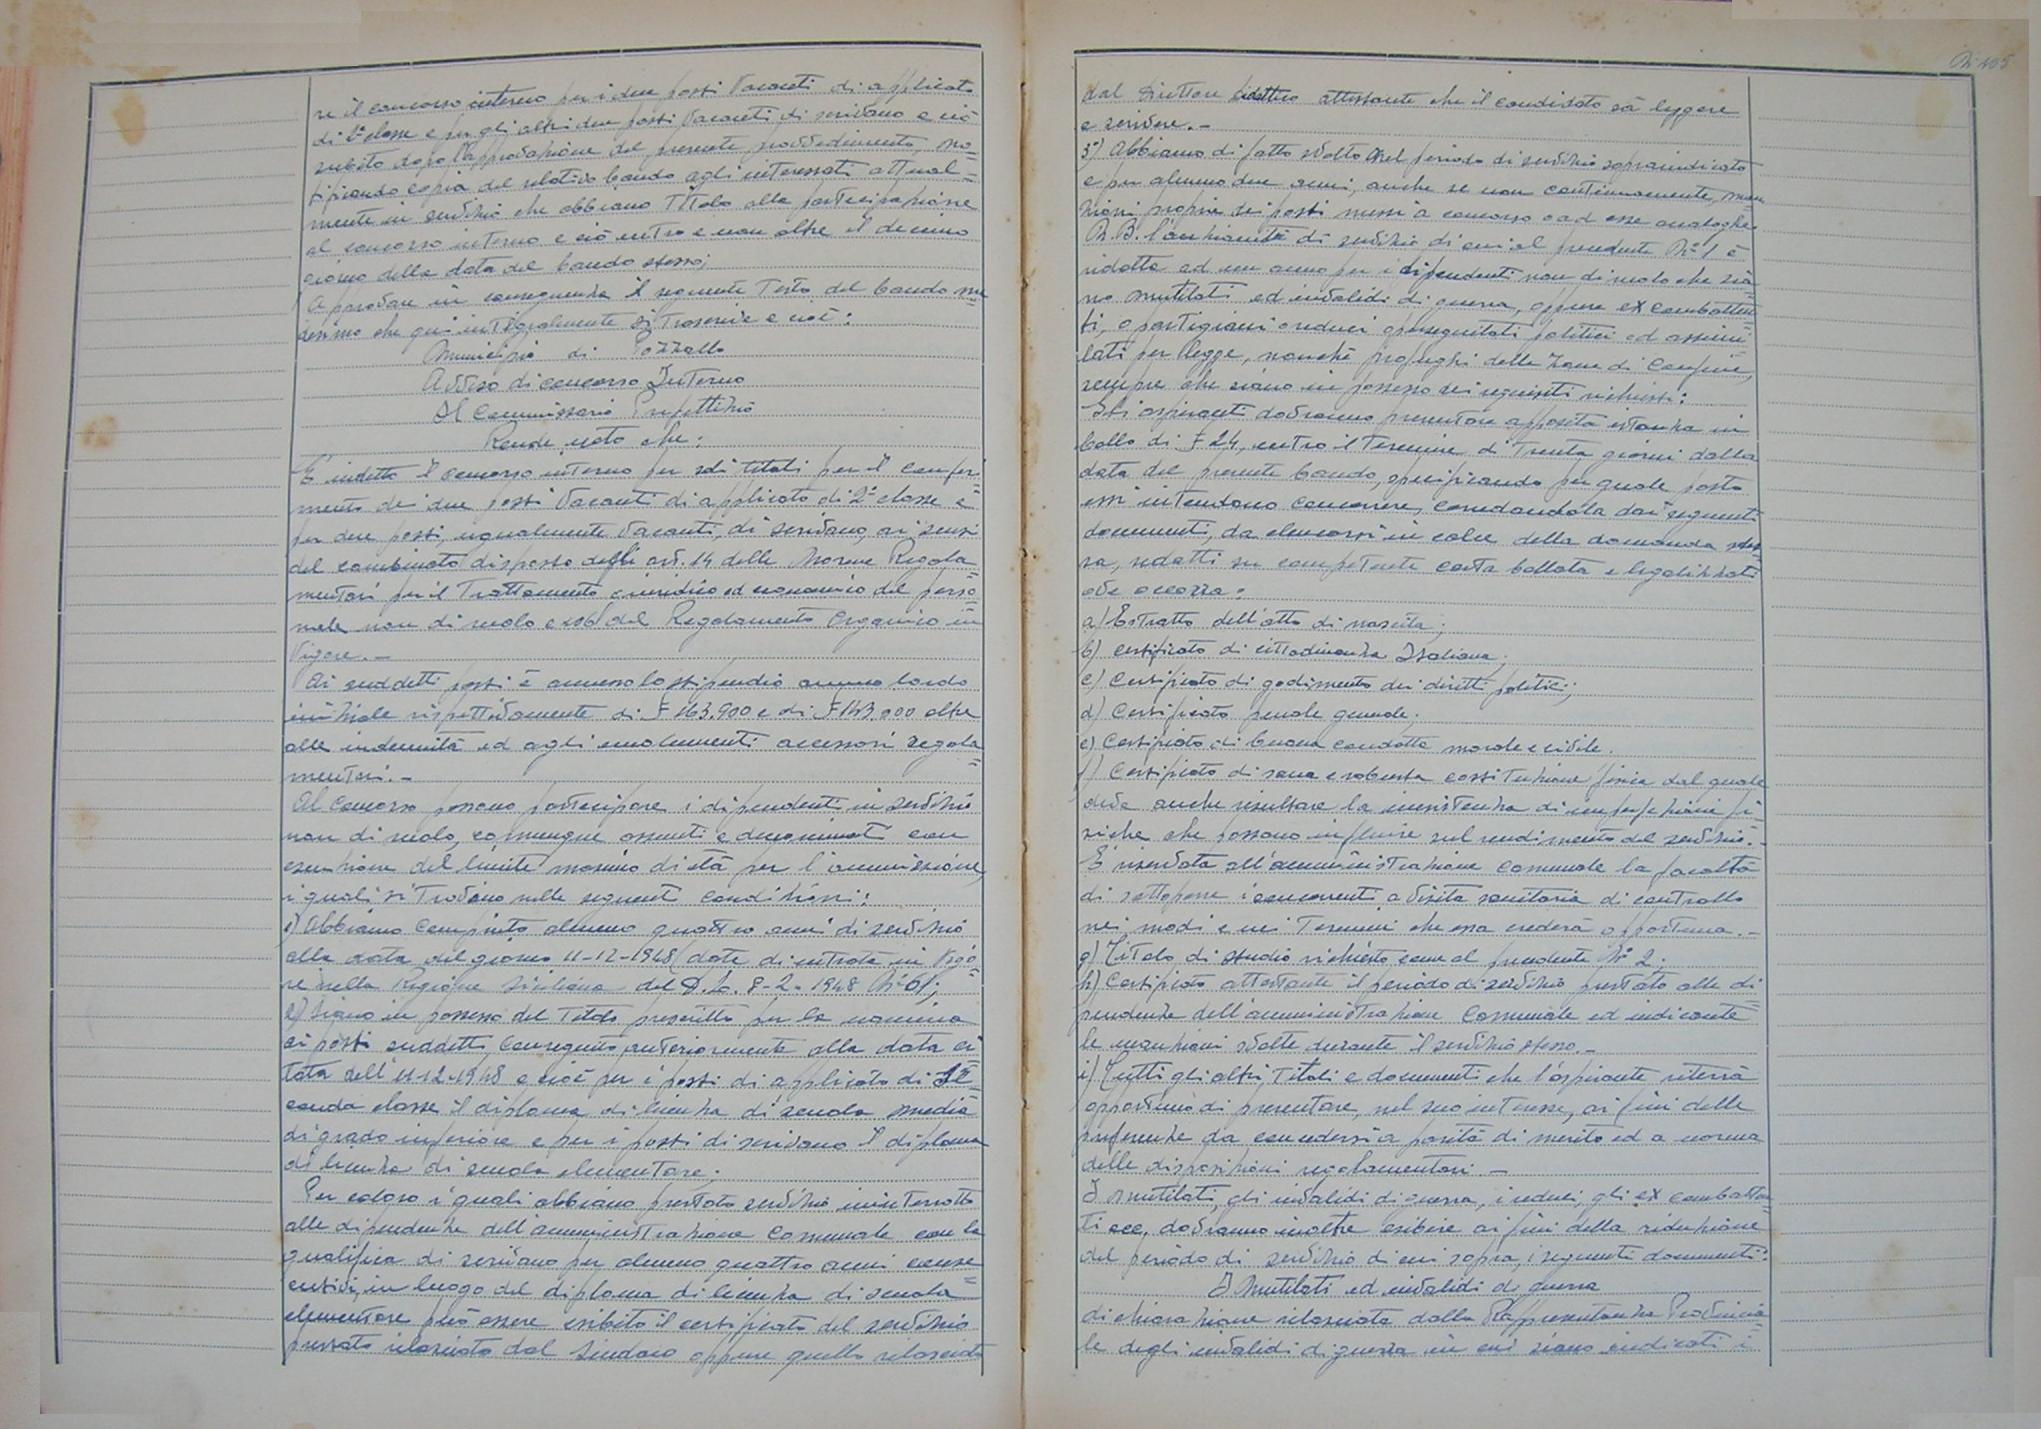 re il concorso interno per i due posti vacanti di applicato
di 2ª classe e per gli altri due posti vacanti di scrivano e ciò
subito dopo l'approvazione del presente provvedimento, no=
tificando copia del relativo bando agli interessati attual=
mente in servizio che abbiano titolo alla partecipazione
al concorso interno e ciò entro e non oltre il decimo
giorno della data del bando stesso;
Approvare in conseguenza il seguente testo del bando me
desimo che qui integralmente si trascrive e cioè:
Municipio di Pozzallo
Avviso di concorso Interno
Il Commissario Prefettizio
Rende noto che:
E' indetto il concorso interno per soli titoli per il conferi
mento dei due posti vacanti di applicato di 2ª classe e
per due posti, ugualmente vacanti, di scrivano, ai sensi
del combinato disposto degli art. 14 delle Norme Regola
mentari per il trattamento giuridico ed economico del perso=
nale non di ruolo e 106 del Regolamento Organico in
vigore.-
Ai suddetti posti è annesso lo stipendio annuo lordo
iniziale rispettivamente di £ 163.900 e di £ 143.000 oltre
alle indennità ed agli emolumenti accessori regola
mentari.-
Al concorso possono partecipare i dipendenti in servizio
non di ruolo, comunque assunti e denominati con
esenzione del limite massimo di età per l'ammissione,
i quali si trovino nelle seguenti condizioni:
1) Abbiano compiuto almeno quattro anni di servizio
alla data del giorno 11-12-1948 (date di entrata in vigo=
re nella Regione Siciliana del D.L. 8-2-1948 N° 61;
2) Siano in possesso del titolo prescritto per la nomina
ai posti suddetti, conseguito anteriormente alla data ci
tata dell'11-12-1948 e cioè per i posti di applicato di se
conda classe il diploma di licenza di scuola media
di grado inferiore e per i posti di scrivano il diploma
di licenza di scuola elementare;
Per coloro i quali abbiano prestato servizio ininterrotto
alle dipendenze dell'amministrazione Comunale con la
qualifica di scrivano per almeno quattro anni conse
cutivi, in luogo del diploma di licenza di scuola
elementare può essere esibito il certificato del servizio
prestato rilasciato dal Sindaco oppure quello rilasciato
N. 105
dal Direttore Didattico attestante che il candidato sà leggere
e scrivere.-
3°) Abbiano di fatto svolto nel periodo di servizio sopraindicato
e per almeno due anni, anche se non continuamente, man
zioni proprie dei posti messi a concorso o ad esse analoghe.
N.B. l'anzianità di servizio di cui al precedente N° 1 è
ridotta ad un anno per i dipendenti non di ruolo che sia
no mutilati ed invalidi di guerra, oppure ex combatten
ti, o partigiani o reduci o perseguitati politici ed assimi=
lati per legge, nonchè profughi delle zone di confine,
sempre che siano in possesso dei requisiti richiesti:
Gli aspiranti dovranno presentare apposita istanza in
bollo di £ 24, entro il termine di trenta giorni dalla
data del presente bando, specificando per quale posto
essi intendono concorrere, corredandola dai seguenti
documenti, da elencarsi in calce della domanda stes
sa, redatti su competente carta bollata e legalizzati
ove occorra:
a) Estratto dell'atto di nascita;
b) certificato di cittadinanza Italiana;
c) Certificato di godimento dei diritti politici;
d) Certificato penale generale.
e) Certificato di buona condotta morale e civile.
f) Certificato di sana e robusta costituzione fisica dal quale
deve anche risultare la inesistenza di imperfezioni fi
siche che possano influire sul rendimento del servizio.-
E' riservata all'amministrazione comunale la facoltà
di sottoporre i concorrenti a visita sanitaria di controllo
nei modi e nei termini che essa crederà opportuna.-
g) Titolo di studio richiesto come al precedente N° 2;
h) Certificato attestante il periodo di servizio prestato alle di
pendenze dell'amministrazione Comunale ed indicante
le manzioni svolte durante il servizio stesso.-
i) Tutti gli altri titoli e documenti che l'aspirante riterrà
opportuno di presentare, nel suo interesse, ai fini delle
preferenze da concedersi a parità di merito ed a norma
delle disposizioni regolamentari.-
I mutilati, gli invalidi di guerra, i reduci, gli ex combatten
ti ecc. dovranno inoltre esibire ai fini della riduzione
del periodo di servizio di cui sopra, i seguenti documenti:
I Mutilati ed invalidi di guerra
dichiarazione rilasciata dalla Rappresentanza Provincia
le degli invalidi di guerra in cui siano indicati i